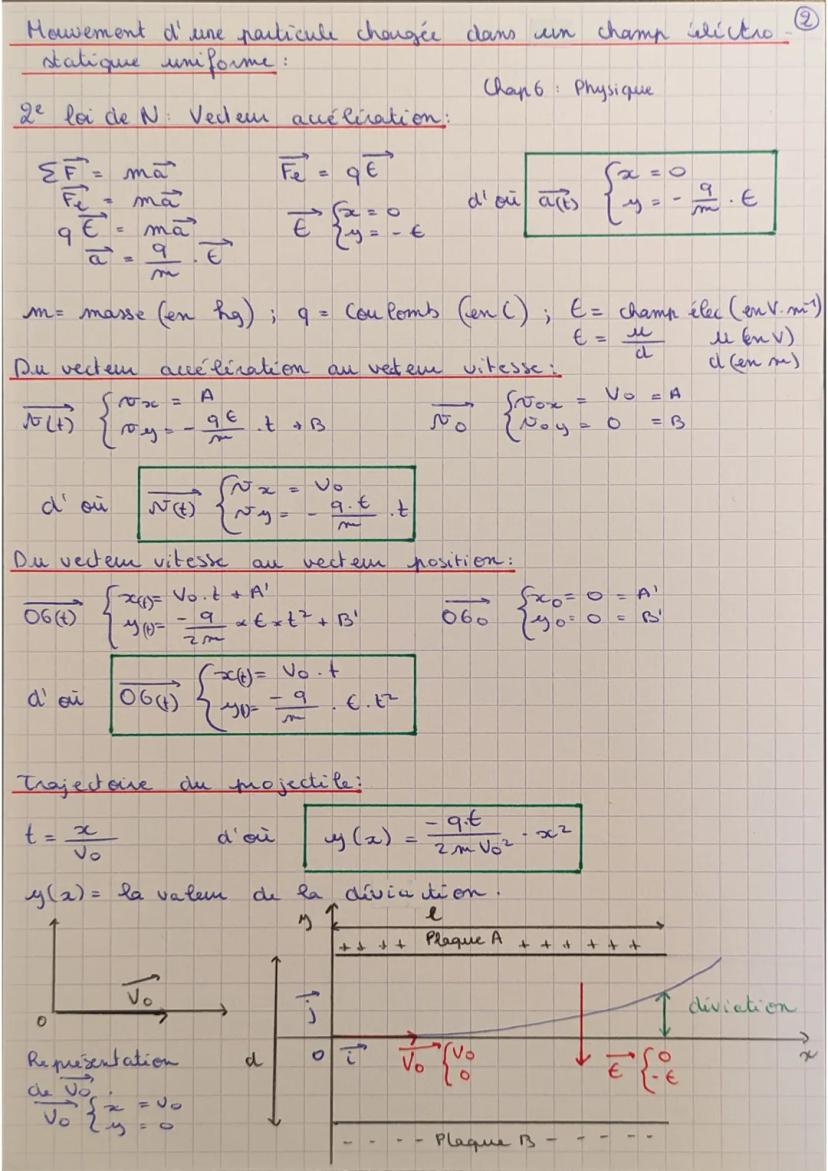 ②
Mouvement d'une particule chargée dans un champ électro-
statique uniforme :
Chap 6 : Physique
2e loi de N : Vecteur accélération :
ΣF⃗ = ma⃗
F⃗e = ma⃗
qE⃗ = ma⃗
a⃗ = q/m . E⃗
F⃗e = qE⃗
E⃗ { x = 0
y = - E
d'où a⃗(t) { x = 0
y = - q/m . E
m = masse (en kg) ; q = Coulomb (en C) ; E = champ élec (en V.m⁻¹)
E = u/d u (en V)
d (en m)
Du vecteur accélération au vecteur vitesse :
v⃗(t) { vx = A
vy = - qE/m . t + B
v⃗0 { v0x = V0 = A
v0y = 0 = B
d'où v⃗(t) { vx = V0
vy = - q.E/m . t
Du vecteur vitesse au vecteur position :
OG⃗(t) { x(t) = V0 . t + A'
y(t) = -q/2m × E × t² + B'
OG⃗0 { x0 = 0 = A'
y0 = 0 = B'
d'où OG⃗(t) { x(t) = V0 . t
y(t) = -q/m . E . t²
Trajectoire du projectile :
t = x/V0 d'où y(x) = -q.E/2mV0² . x²
y(x) = la valeur de la déviation.
y l
+ + + + Plaque A + + + + + +
V⃗0
0
j⃗
déviation
d 0 i⃗ V⃗0 { V0
0
E⃗ { 0
-E
x
Représentation
de V⃗0.
V⃗0 { x = V0
y = 0
- - - - Plaque B - - - -